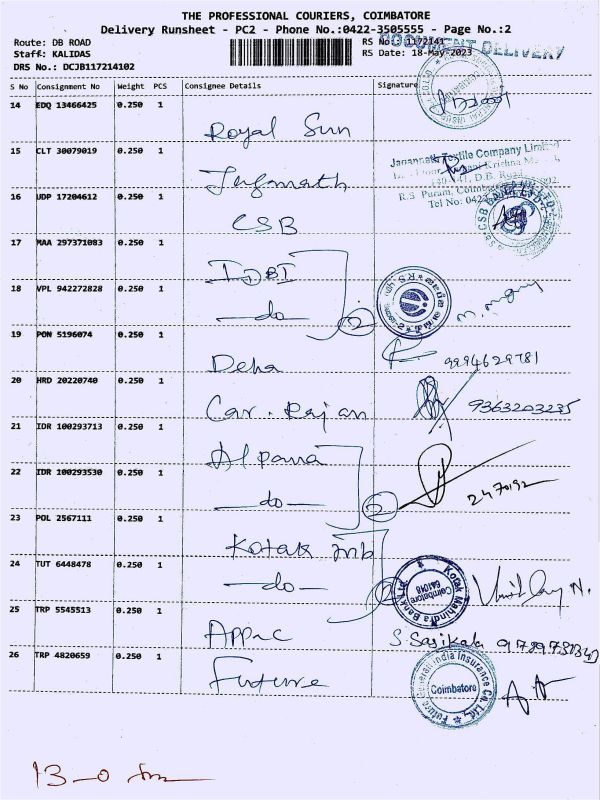 THE PROFESSIONAL COURIERS, COIMBATORE
Delivery Runsheet - PC2 - Phone No.:0422-3505555 - Page No.:2
Route: DB ROAD
Staff: KALIDAS
DRS No.: DCJB117214102
RS No.: 1172141
RS Date: 18-May-2023
DOCUMENT DELIVERY
S No Consignment No Weight PCS Consignee Details Signature
14 EDQ 13466425 0.250 1
Royal Sun
15 CLT 30079019 0.250 1
Jagannath
Jagannath Textile Company Limited
Tel No: 0422
16 UDP 17204612 0.250 1
CSB
17 MAA 297371083 0.250 1
IDBI
18 VPL 942272828 0.250 1
do 2
19 PON 5196074 0.250 1
Deha 9994629781
20 HRD 20220740 0.250 1
Car. Rajan 9363203235
21 IDR 100293713 0.250 1
Alpana
22 IDR 100293530 0.250 1
do 2
23 POL 2567111 0.250 1
Kotak
24 TUT 6448478 0.250 1
do 2
Kotak Mahindra Bank Ltd
Coimbatore
641018
25 TRP 5545513 0.250 1
S. Sasikala
26 TRP 4820659 0.250 1
Future
Future Generali India Insurance Co. Ltd.
Coimbatore